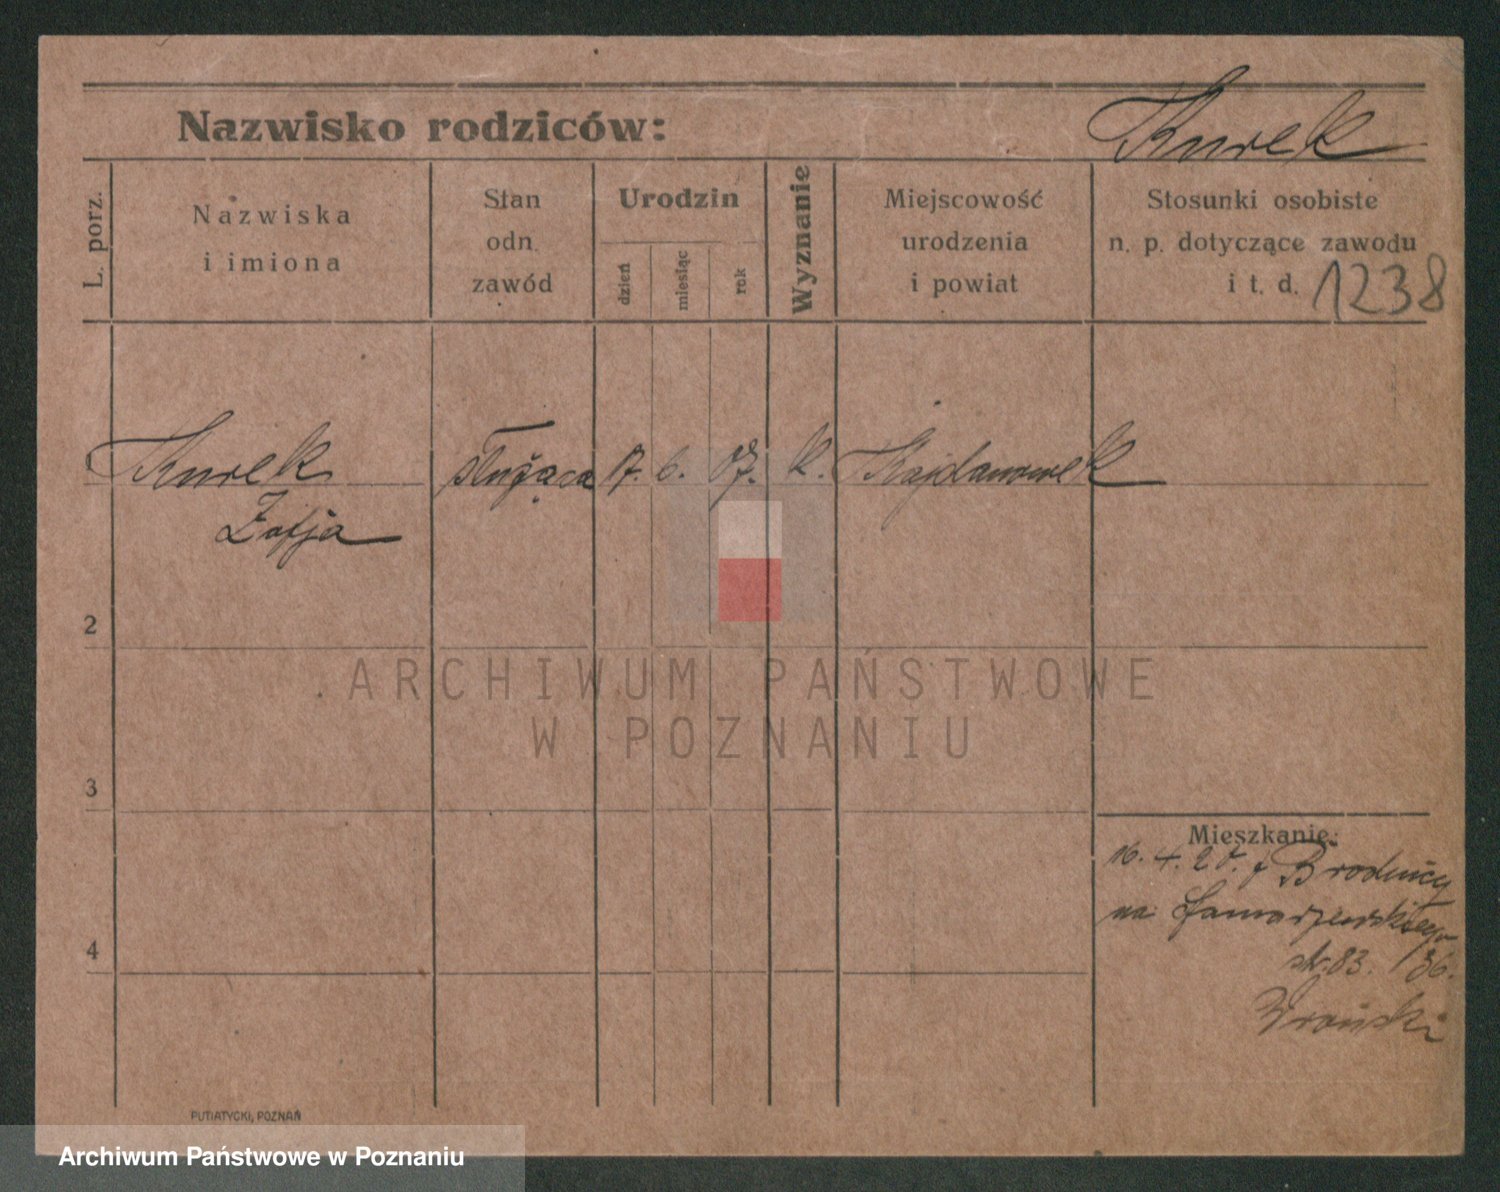 Nazwisko rodziców: Kurek
L. porz.
Nazwiska
i imiona
Stan
odn.
zawód
Urodzin
dzień
miesiąc
rok
Wyznanie
Miejscowość
urodzenia
i powiat
Stosunki osobiste
n. p. dotyczące zawodu
i t. d. 1238
Kurek służąca 17. 6. 07. k.
Zofja
2
3
4
ARCHIWUM PAŃSTWOWE
W POZNANIU
Mieszkanie:
16. 4. 2 z Brodnicy
na
str. 83. /36.
Wroński
PUTIATYCKI, POZNAŃ
Archiwum Państwowe w Poznaniu